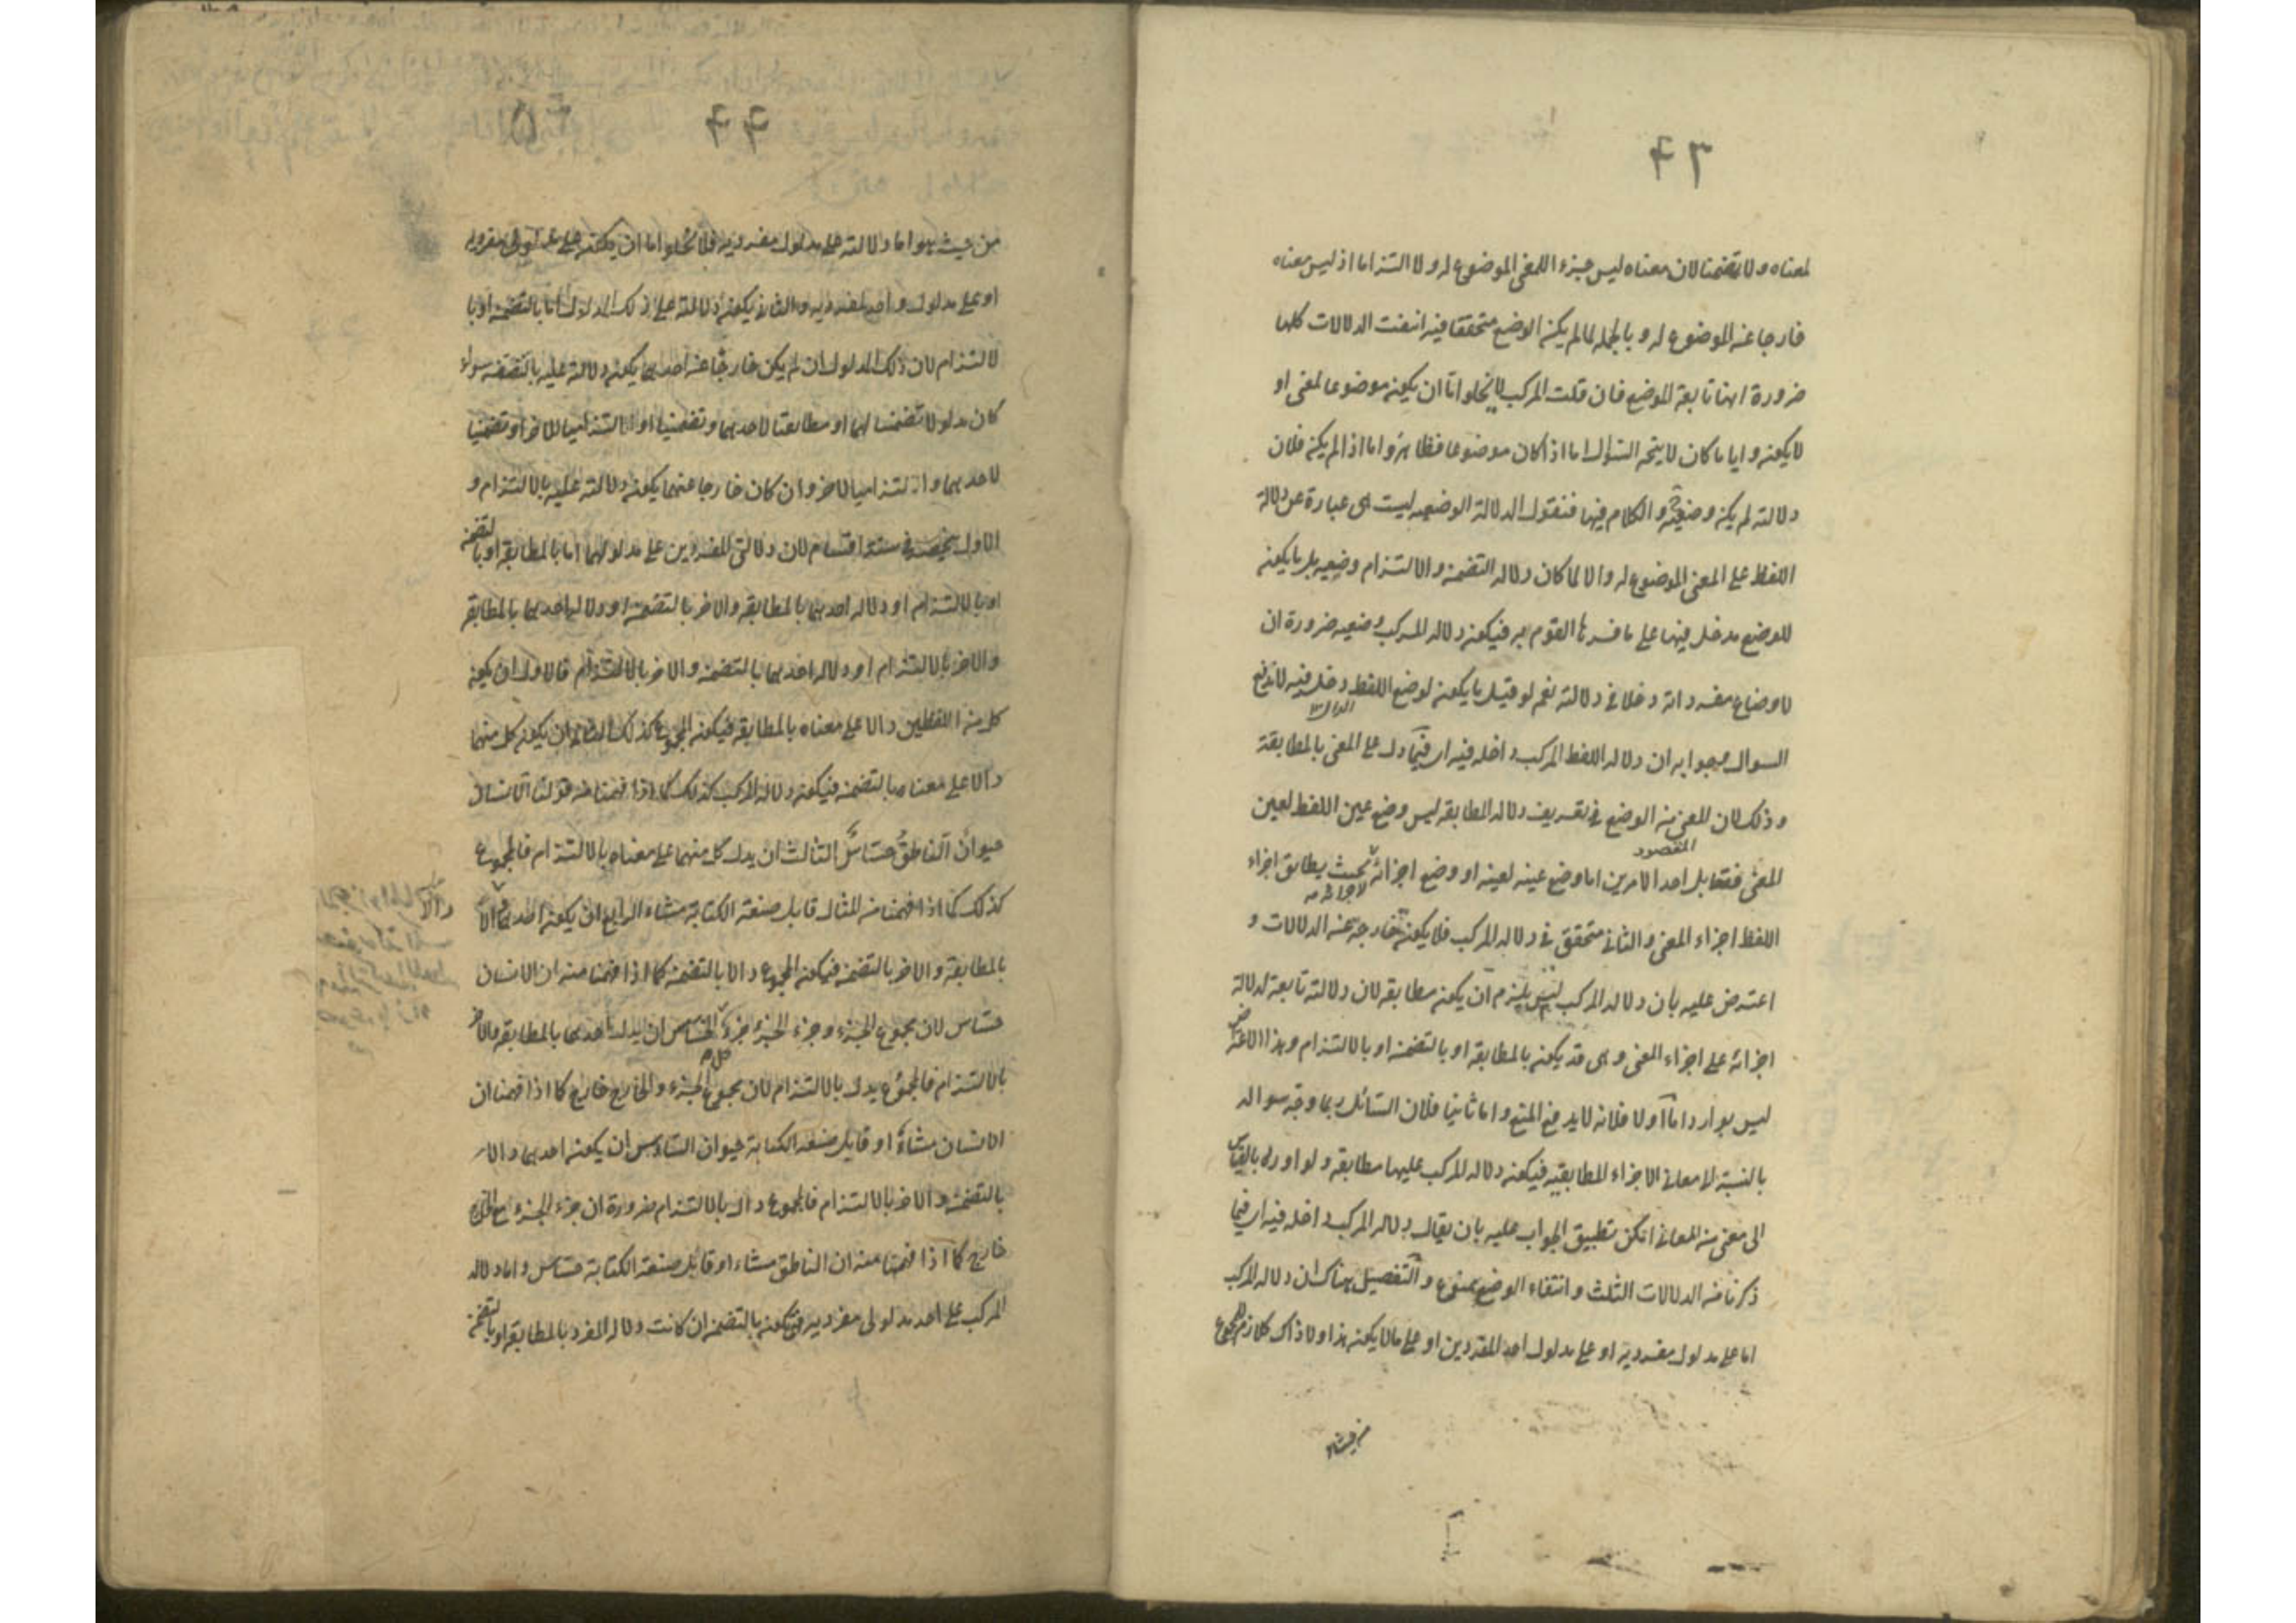 ٦٣
لمعناه ولا تضمنا لان معناه ليس جزء المعنى الموضوع له ولا التزاما اذ ليس معناه
خارجا عن الموضوع له و بالجمله لما لم يكن الوضع متحققا فيه انتفت الدلالات كلها
ضرورة انها تابعة للوضع فان قلت المركب لا يخلو اما ان يكون موضوعا لمعنى او
لا يكون و ايا ما كان لا يتجه السؤال اما اذا كان موضوعا فظاهر و اما اذا لم يكن فلان
دلالته لم يكن وضعية و الكلام فيها فنقول الدلالة الوضعيه ليست هى عبارة عن دلالة
اللفظ على المعنى الموضوع له والا لما كان دلاله التضمن والالتزام وضعيه بل ما يكون
للوضع مدخل فيها على ما فسرها القوم به فيكون دلاله المركب وضعيه ضرورة ان
لاوضاع مفرداته دخلا فى دلالته نعم لو قيل ما يكون لوضع اللفظ دخل فيه لاندفع
السوال وجوابه ان دلاله اللفظ المركب داخله فيه اى فيما دل على المعنى بالمطابقة
وذلك لان المعنى من الوضع فى تعريف دلاله المطابقه ليس وضع عين اللفظ لعين
المقصود
المعنى فقط بل احد الامرين اما وضع عينه لعينه او وضع اجزائه بحيث يطابق اجزاء
اللفظ اجزاء المعنى والثانى متحقق فى دلاله المركب فلا يكون خارجه عن الدلالات و
اعترض عليه بان دلاله المركب ليس يلزم ان يكون مطابقه لان دلالته تابعة لدلالة
اجزائه على اجزاء المعنى و هى قد يكون بالمطابقه او بالتضمن او بالالتزام وهذا الاعتراض
ليس بوارد اما اولا فلانه لا يدفع المنع و اما ثانيا فلان السائل ربما وجه سواله
بالنسبة الى معانى الاجزاء المطابقيه فيكون دلاله المركب عليها مطابقه ولو اورد بالقياس
الى معنى من المعانى امكن تطبيق الجواب عليه بان يقال دلاله المركب داخله فيه اى فيما
ذكرنا من الدلالات الثلث و انتفاء الوضع ممنوع و التفصيل هناك ان دلاله المركب
اما على مدلول مفرديه او على مدلول احد المفردين او على مالا يكون هذا ولا ذاك كلازم المجموع
من حيث
٦٤
من حيث هو اما دلالته على مدلول مفرديه فلا يخلو اما ان يكون على مدلولى مفرديه
او على مدلول واحد لمفرديه والثانى يكون دلالته على ذلك المدلول اما بالتضمن او با
لالتزام لان ذلك المدلول ان لم يكن خارجا عن احدهما يكون دلالته عليه بالتضمن سواء
كان مدلولا تضمنيا لهما او مطابقيا لاحدهما وتضمنيا او التزاميا للاخر او تضمنيا
لاحدهما والتزاميا للاخر وان كان خارجا عنهما يكون دلالته عليه بالالتزام و
الاول ينحصر فى ستة اقسام لان دلالتى المفردين على مدلولهما اما بالمطابقه او بالتضمن
او بالالتزام او دلاله احدهما بالمطابقه والاخر بالتضمن او دلاله احدهما بالمطابقه
والاخر بالالتزام او دلاله احدهما بالتضمن والاخر بالالتزام فالاول ان يكون
كل من اللفظين دالا على معناه بالمطابقه فيكون المجموع كذلك الثانى ان يكون كل منهما
دالا على معناه بالتضمن فيكون دلاله المركب كذلك كما اذا فهمنا من قولنا الانسان
حيوان الناطق حساس الثالث ان يدل كل منهما على معناه بالالتزام فالمجموع
كذلك كما اذا فهمنا من المثال قابل صنعة الكتابة مشاء الرابع ان يكون احدهما دالا
بالمطابقة والاخر بالتضمن فيكون المجموع دالا بالتضمن كما اذا فهمنا منه ان الانسان
حساس لان مجموع الجزء وجزء الجزء جزء الخامس ان يدل احدهما بالمطابقه والاخر
بالالتزام فالمجموع يدل بالالتزام لان مجموع الجزء والخارج خارج كما اذا فهمنا ان
الانسان مشاء او قابل صنعة الكتابة حيوان السادس ان يكون احدهما دالا
بالتضمن والاخر بالالتزام فالمجموع دال بالالتزام ضرورة ان جزء الجزء مع الخارج
خارج كما اذا فهمنا منه ان الناطق مشاء او قابل صنعة الكتابة حساس و اما دلاله
المركب على احد مدلولى مفرديه فيكون بالتضمن ان كانت دلاله المفرد بالمطابقه او بالتضمن